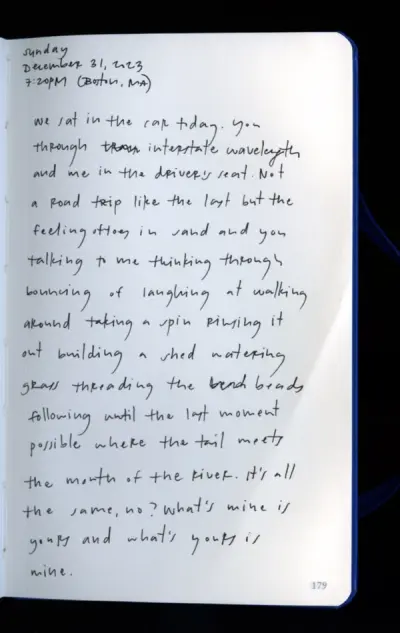 Sunday
December 31, 2023
7:20PM (Boston, MA)
we sat in the car today. you
through interstate wavelength
and me in the driver's seat. Not
a road trip like the last but the
feeling of toes in sand and you
talking to me thinking through
bouncing of laughing at walking
around taking a spin rinsing it
out building a shed watering
grass threading the beads
following until the last moment
possible where the tail meets
the mouth of the river. it's all
the same, no? What's mine is
yours and what's yours is
mine.
179